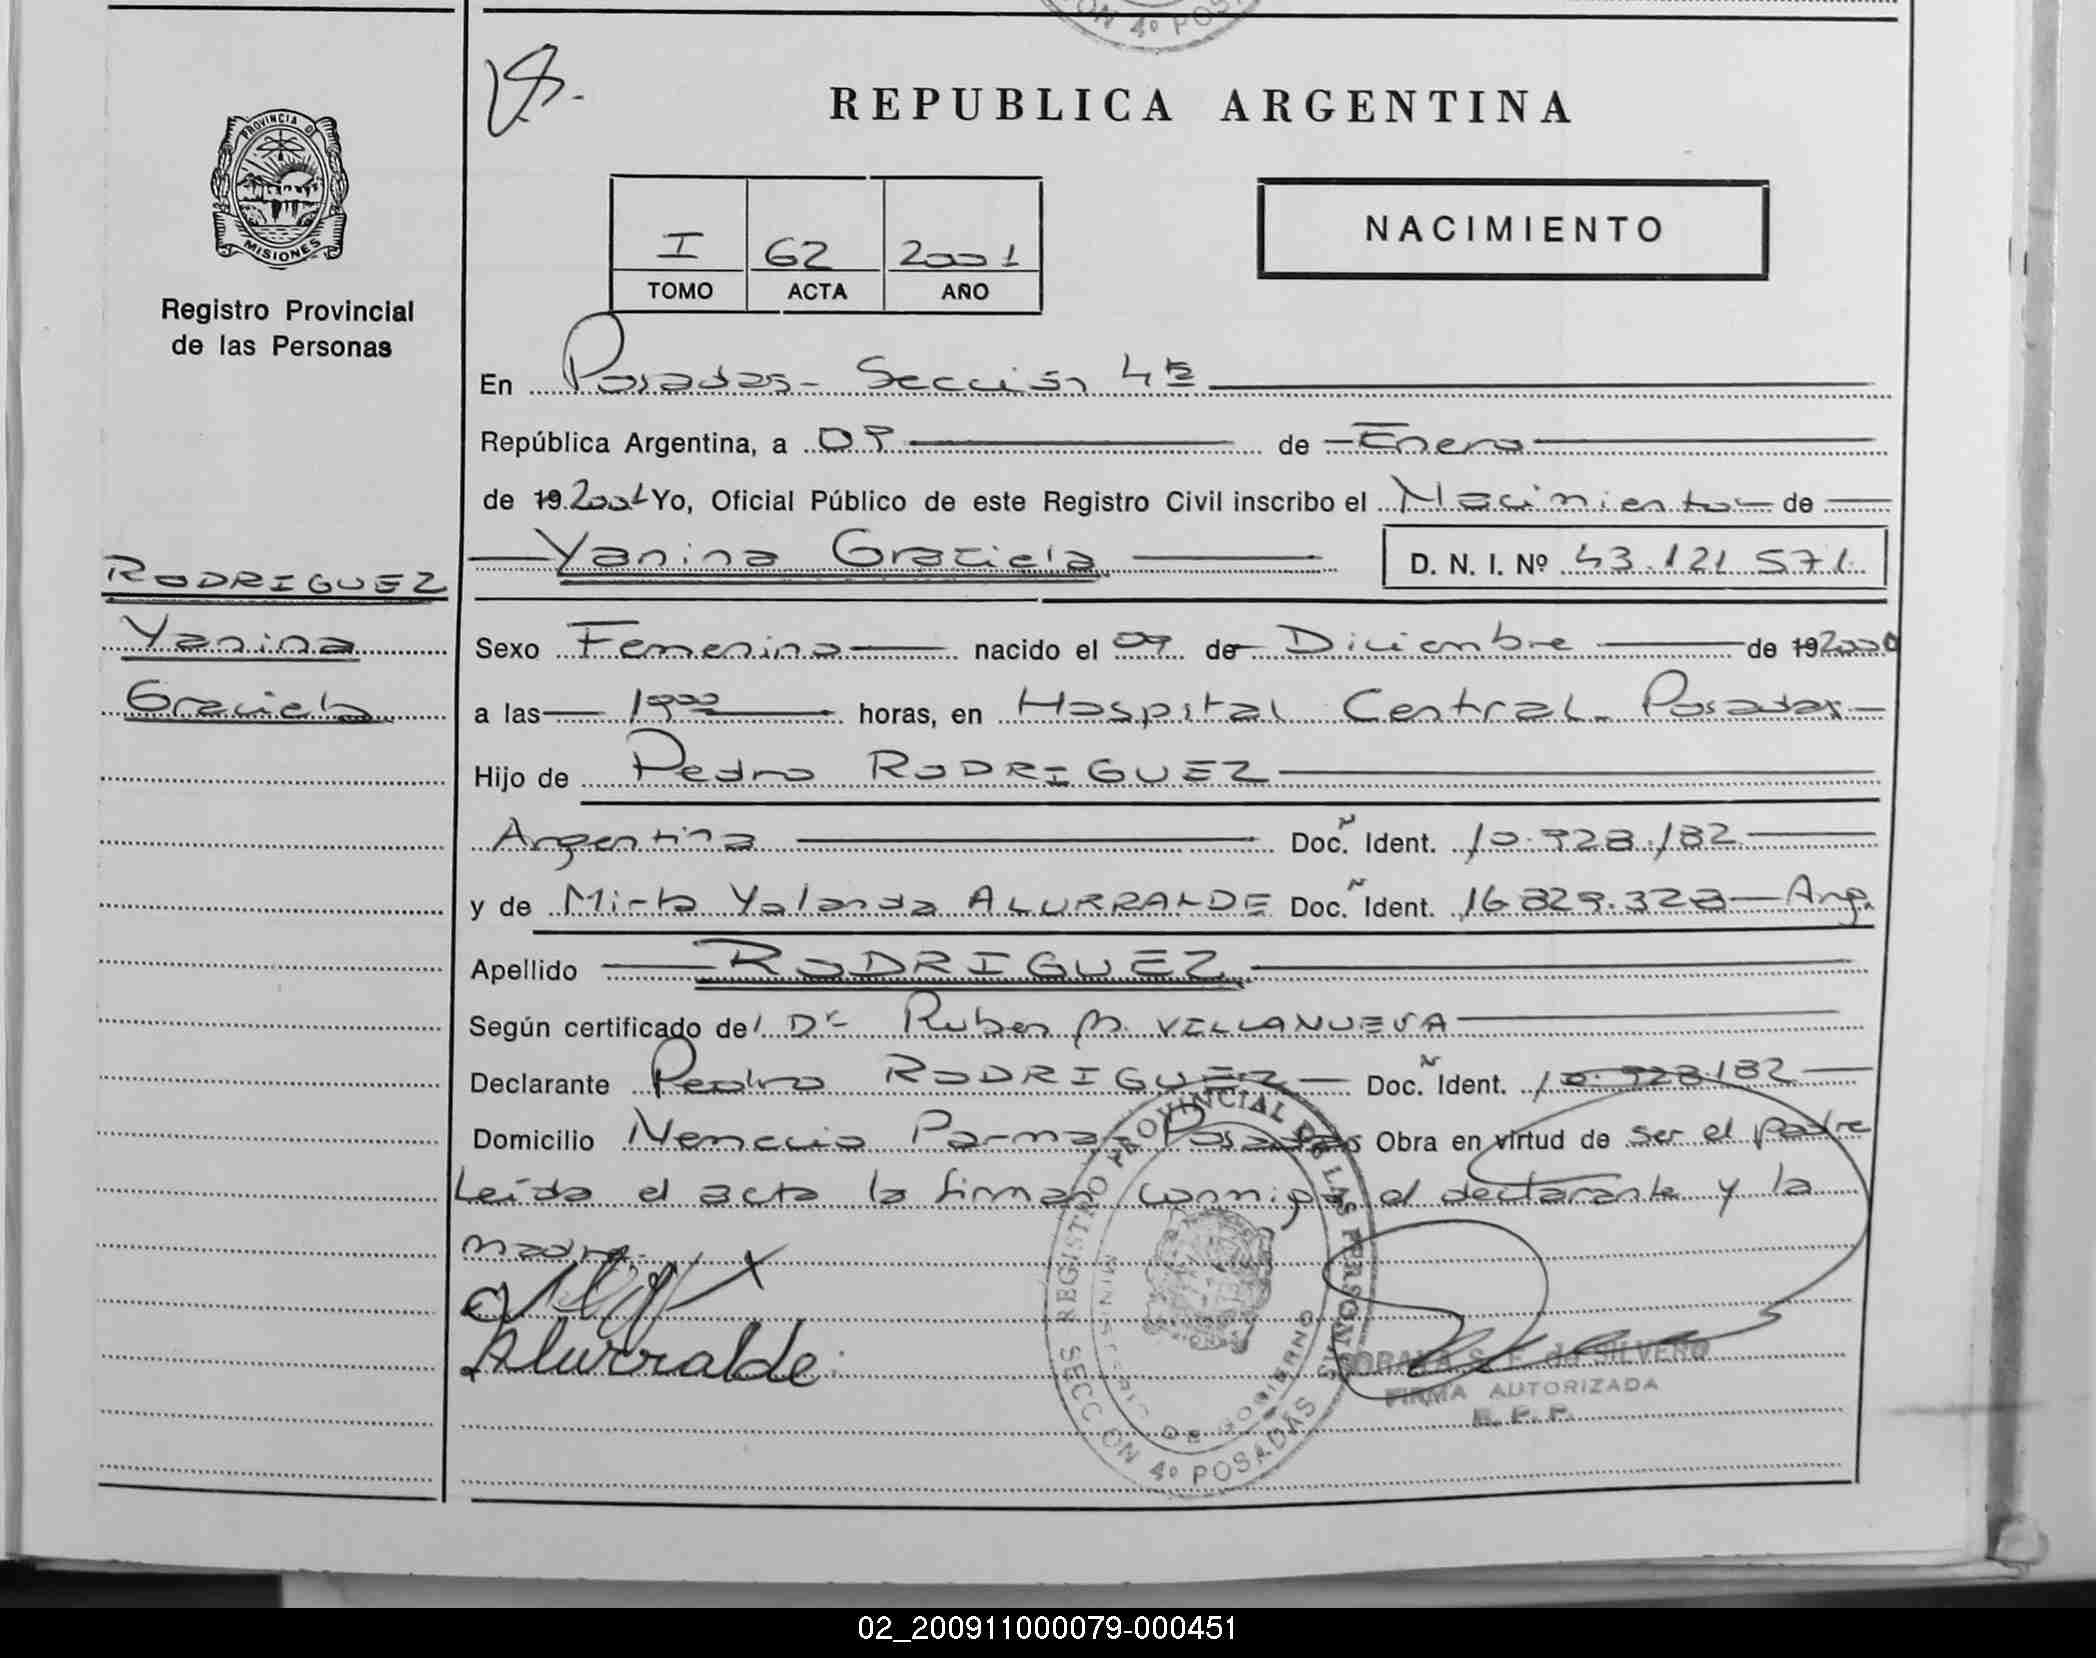 ON 4º POSA
PROVINCIA DE
MISIONES
Registro Provincial
de las Personas
REPUBLICA ARGENTINA
NACIMIENTO
I 62 2001
TOMO ACTA AÑO
En Posadas - Sección 4ta
República Argentina, a 09 de Enero
de 19 2001 Yo, Oficial Público de este Registro Civil inscribo el Nacimiento de
Yanina Graciela D. N. I. Nº 43.121.571
RODRIGUEZ
Yanina
Graciela
Sexo Femenino nacido el 09 de Diciembre de 19 2000
a las 19:00 horas, en Hospital Central - Posadas -
Hijo de Pedro RODRIGUEZ
Argentina Doc. Ident. 10.928.182
y de Mirta Yolanda ALURRALDE Doc. Ident. 16.829.328 - Arg.
Apellido RODRIGUEZ
Según certificado del Dr. Ruben M. VILLANUEVA
Declarante Pedro RODRIGUEZ - Doc. Ident. 10.928.182
Domicilio Nemecio Parma - Posadas Obra en virtud de ser el padre
Leída el acta la firman conmigo el declarante y la
madre.
Alurralde
REGISTRO PROVINCIAL DE LAS PERSONAS
MINISTERIO DE GOBIERNO
SECCION 4º POSADAS
SORAYA S. F. de SILVERO
FIRMA AUTORIZADA
R. P. P.
02_200911000079-000451